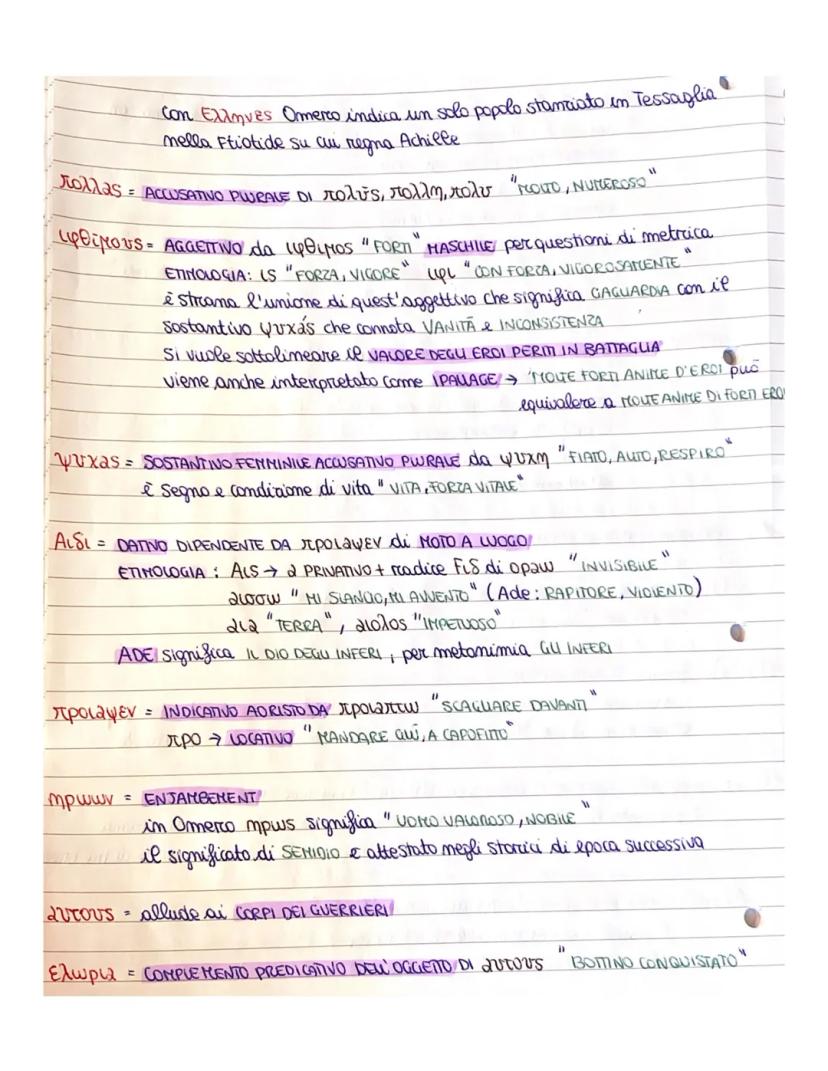 con Ελληνες Omero indica un solo popolo stanziato in Tessaglia
nella Ftiotide su cui regna Achille
πολλας = ACCUSATIVO PLURALE DI πολυς, πολλη, πολυ "MOLTO, NUMEROSO"
ιφθιμους = AGGETTIVO da ιφθιμος "FORTI" MASCHILE per questioni di metrica
ETIMOLOGIA: ις "FORZA, VIGORE" ιφι "CON FORZA, VIGOROSAMENTE"
è strana l'unione di quest'aggettivo che significa GAGLIARDIA con il
sostantivo ψυχάς che connota VANITÀ e INCONSISTENZA
Si vuole sottolineare il VALORE DEGLI EROI PERITI IN BATTAGLIA
viene anche interpretato come IPALLAGE → "MOLTE FORTI ANIME D'EROI può
equivalere a MOLTE ANIME DI FORTI EROI
ψυχας = SOSTANTIVO FEMMINILE ACCUSATIVO PLURALE da ψυχη "FIATO, ALITO, RESPIRO"
è segno e condizione di vita "VITA, FORZA VITALE"
Αιδι = DATIVO DIPENDENTE DA προιαψεν di MOTO A LUOGO
ETIMOLOGIA : Αις → α PRIVATIVO + radice Fιδ di οραω "INVISIBILE"
αισσω "MI SLANCIO, MI AVVENTO" (Ade: RAPITORE, VIOLENTO)
αια "TERRA", αιολος "IMPETUOSO"
ADE significa IL DIO DEGLI INFERI, per metonimia GLI INFERI
προιαψεν = INDICATIVO AORISTO DA προιαπτω "SCAGLIARE DAVANTI"
προ → LOCATIVO "MANDARE GIÙ, A CAPOFITTO"
ηρωων = ENJAMBEMENT
in Omero ηρως significa "UOMO VALOROSO, NOBILE"
il significato di SEMIDIO è attestato negli storici di epoca successiva
αυτους = allude ai CORPI DEI GUERRIERI
ελωρια = COMPLEMENTO PREDICATIVO DELL'OGGETTO DI αυτους "BOTTINO CONQUISTATO"